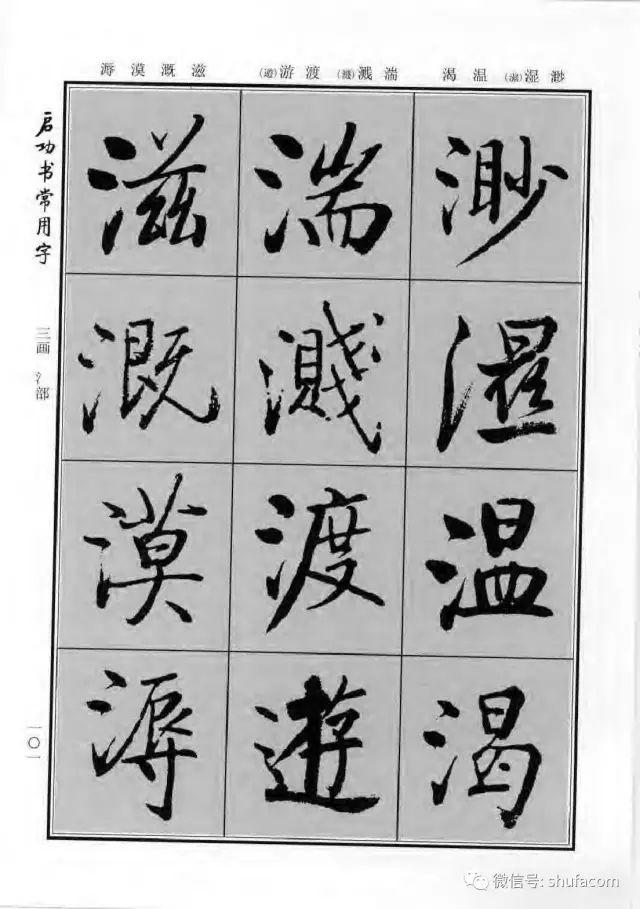 渺湿(濕)温渴
湍溅(濺)渡游(遊)
滋溉漠溽
渺濕温渴
湍濺渡遊
滋溉漠溽
启功书常用字
三画 氵部
一〇一
微信号: shufacom